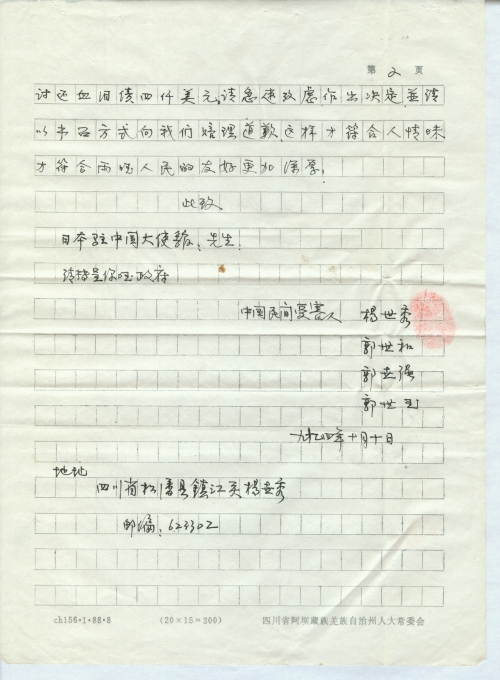 第 2 页
讨还血泪债四仟美元,请急速考虑作出决定,並请
以书面方式向我们赔理道歉,这样才符合人情味
才符合两国人民的友好更加深厚。
此致
日本驻中国大使馆:先生:
请转呈你国政府
中国民间受害人 杨世秀
郭世和
郭世强
郭世
一九九四年十月十日
地址
四川省松潘县鎮江关杨世秀
邮编:623302
ch156·1·88·8 (20×15=300) 四川省阿坝藏族羌族自治州人大常委会